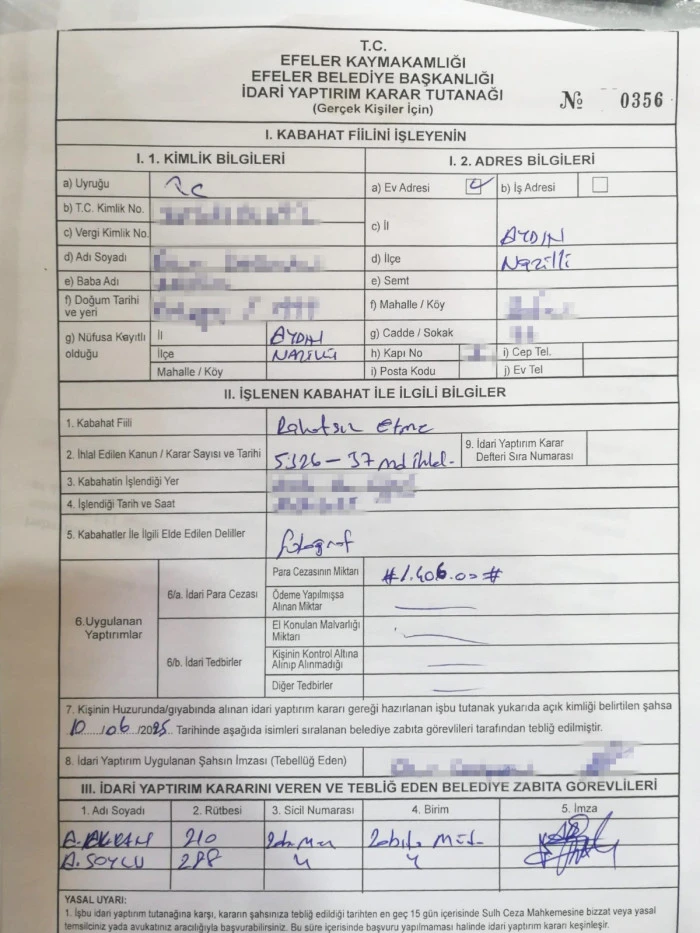 T.C.
EFELER KAYMAKAMLIĞI
EFELER BELEDİYE BAŞKANLIĞI
İDARİ YAPTIRIM KARAR TUTANAĞI
(Gerçek Kişiler İçin)
№ 0356
I. KABAHAT FİİLİNİ İŞLEYENİN
I. 1. KİMLİK BİLGİLERİ
I. 2. ADRES BİLGİLERİ
a) Uyruğu TC
a) Ev Adresi
b) İş Adresi
b) T.C. Kimlik No.
c) Vergi Kimlik No.
c) İl AYDIN
d) Adı Soyadı
d) İlçe Nazilli
e) Baba Adı
e) Semt
f) Doğum Tarihi ve yeri
f) Mahalle / Köy
g) Nüfusa Kayıtlı olduğu
İl AYDIN
g) Cadde / Sokak
İlçe NAZİLLİ
h) Kapı No
i) Cep Tel.
Mahalle / Köy
i) Posta Kodu
j) Ev Tel
II. İŞLENEN KABAHAT İLE İLGİLİ BİLGİLER
1. Kabahat Fiili Rahatsız Etme
2. İhlal Edilen Kanun / Karar Sayısı ve Tarihi 5326-37 md ihlal-
9. İdari Yaptırım Karar Defteri Sıra Numarası
3. Kabahatin İşlendiği Yer
4. İşlendiği Tarih ve Saat
5. Kabahatler İle İlgili Elde Edilen Deliller fotograf
6.Uygulanan Yaptırımlar
6/a. İdari Para Cezası
Para Cezasının Miktarı #1.406.00#
Ödeme Yapılmışsa Alınan Miktar
6/b. İdari Tedbirler
El Konulan Malvarlığı Miktarı
Kişinin Kontrol Altına Alınıp Alınmadığı
Diğer Tedbirler
7. Kişinin Huzurunda/gıyabında alınan idari yaptırım kararı gereği hazırlanan işbu tutanak yukarıda açık kimliği belirtilen şahsa
10./06./2025.. Tarihinde aşağıda isimleri sıralanan belediye zabıta görevlileri tarafından tebliğ edilmiştir.
8. İdari Yaptırım Uygulanan Şahsın İmzası (Tebellüğ Eden)
III. İDARİ YAPTIRIM KARARINI VEREN VE TEBLİĞ EDEN BELEDİYE ZABITA GÖREVLİLERİ
1. Adı Soyadı
2. Rütbesi
3. Sicil Numarası
4. Birim
5. İmza
A. 210 Zabıta Müd.
A. SOYLU 288
YASAL UYARI:
1. İşbu idari yaptırım tutanağına karşı, kararın şahsınıza tebliğ edildiği tarihten en geç 15 gün içerisinde Sulh Ceza Mahkemesine bizzat veya yasal
temsilciniz yada avukatınız aracılığıyla başvurabilirsiniz. Bu süre içerisinde başvuru yapılmaması halinde idari yaptırım kararı kesinleşir.